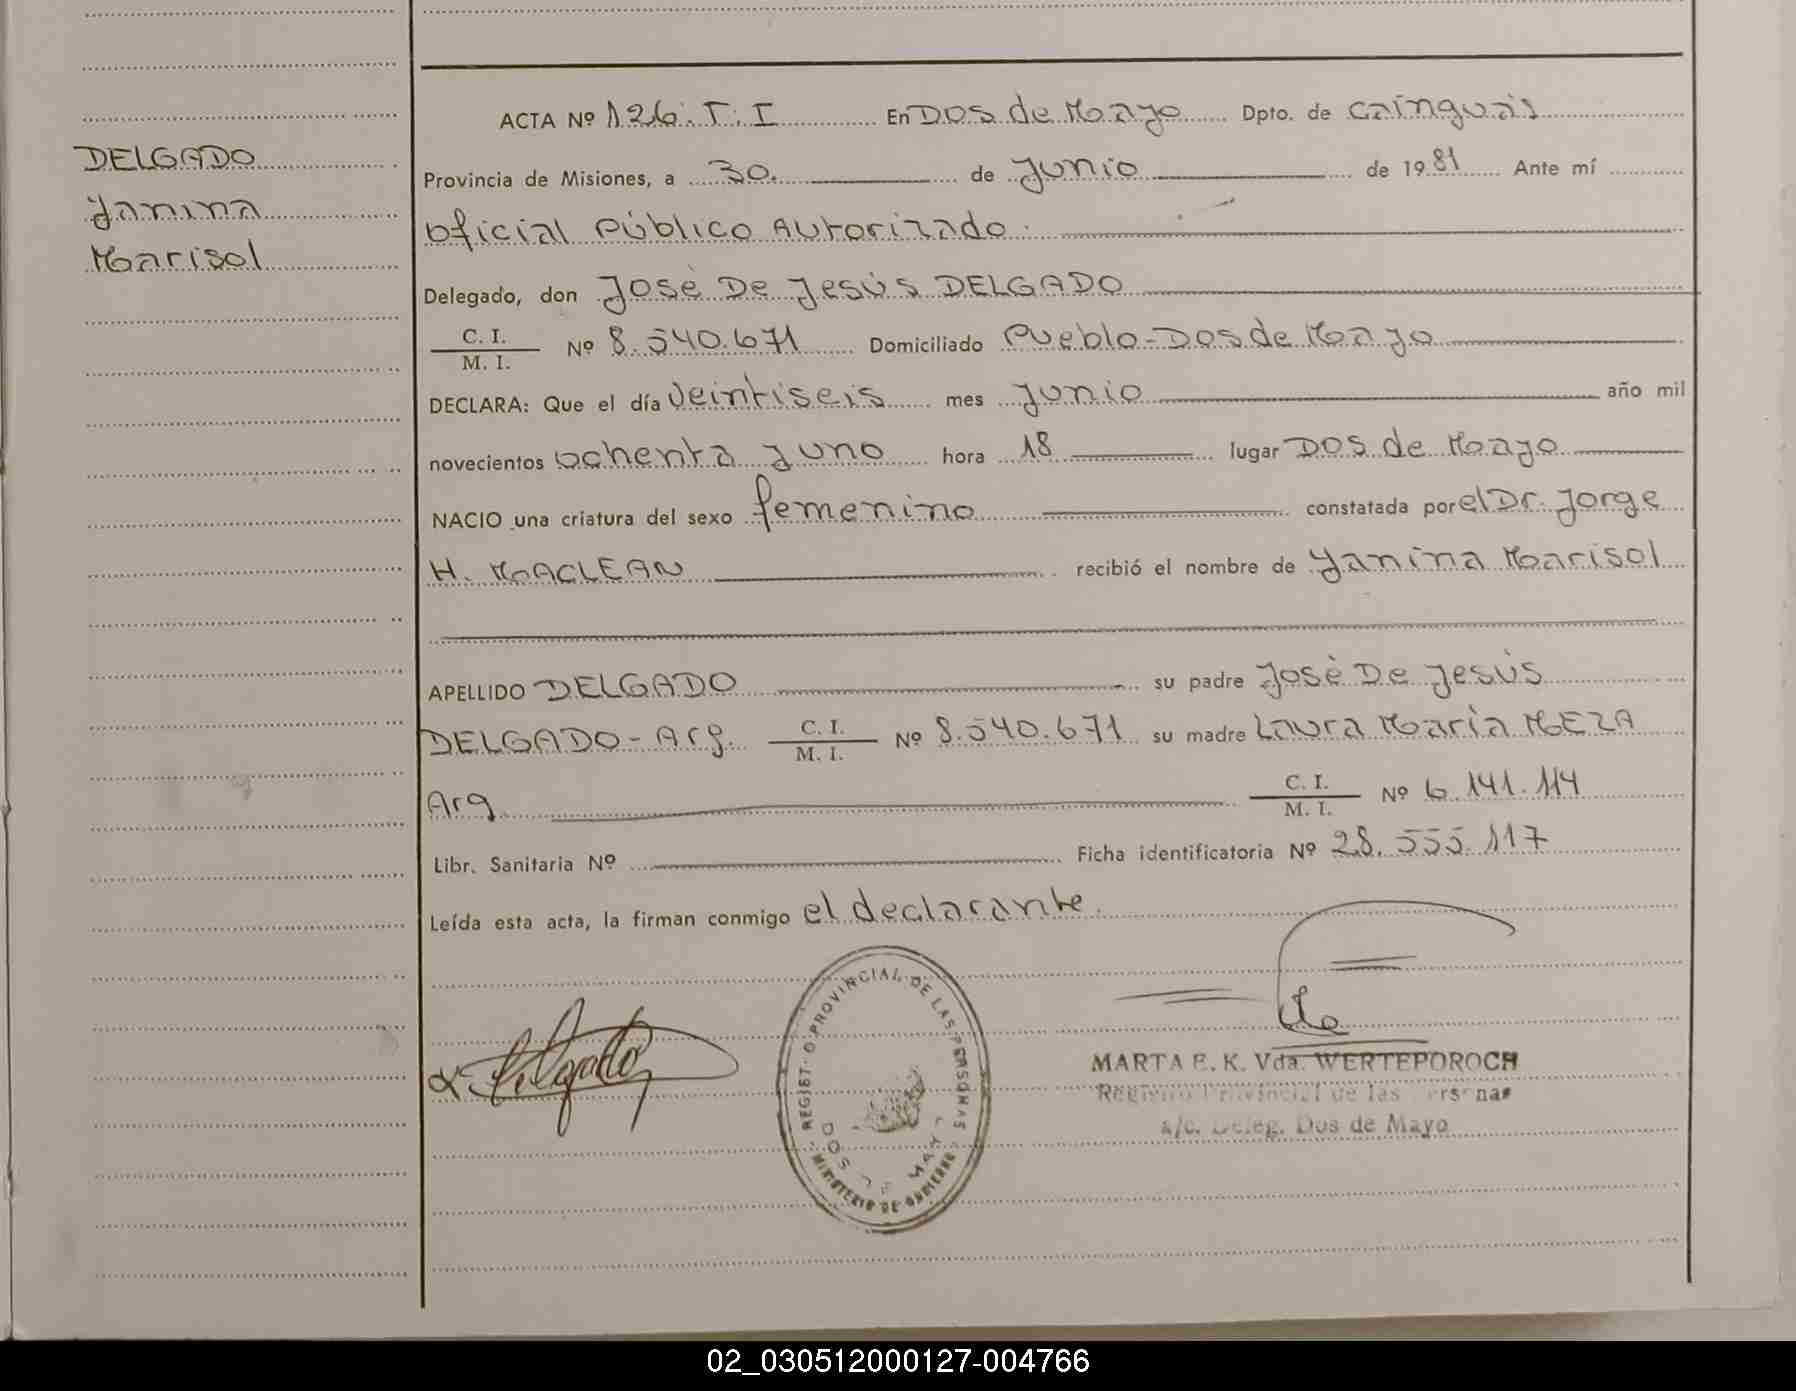 DELGADO
Yanina
Marisol
ACTA Nº 126. T. I En DOS de Mayo Dpto. de Cainguás
Provincia de Misiones, a 30. de Junio de 1981 Ante mí
Oficial Público Autorizado.
Delegado, don José De Jesús DELGADO
C. I.
M. I.
Nº 8.540.671 Domiciliado Pueblo-Dos de Mayo
DECLARA: Que el día Veintiseis mes Junio año mil
novecientos ochenta y uno hora 18 lugar DOS de Mayo
NACIO una criatura del sexo femenino constatada por el Dr. Jorge
H. MACLEAN recibió el nombre de Yanina Marisol
APELLIDO DELGADO su padre José De Jesús
DELGADO-Arg. C. I. M. I. Nº 8.540.671 su madre Laura María MEZA
Arg. C. I. M. I. Nº 6.141.114
Libr. Sanitaria Nº Ficha identificatoria Nº 28.555.117
Leída esta acta, la firman conmigo el declarante.
Delgado
REGIST O PROVINCIAL DE LAS PERSONAS
DOS DE MAYO
MINISTERIO DE GOBIERNO
MARTA E. K. Vda. WERTEPOROCH
Registro Provincial de las Personas
a/c. Deleg. Dos de Mayo
02_030512000127-004766